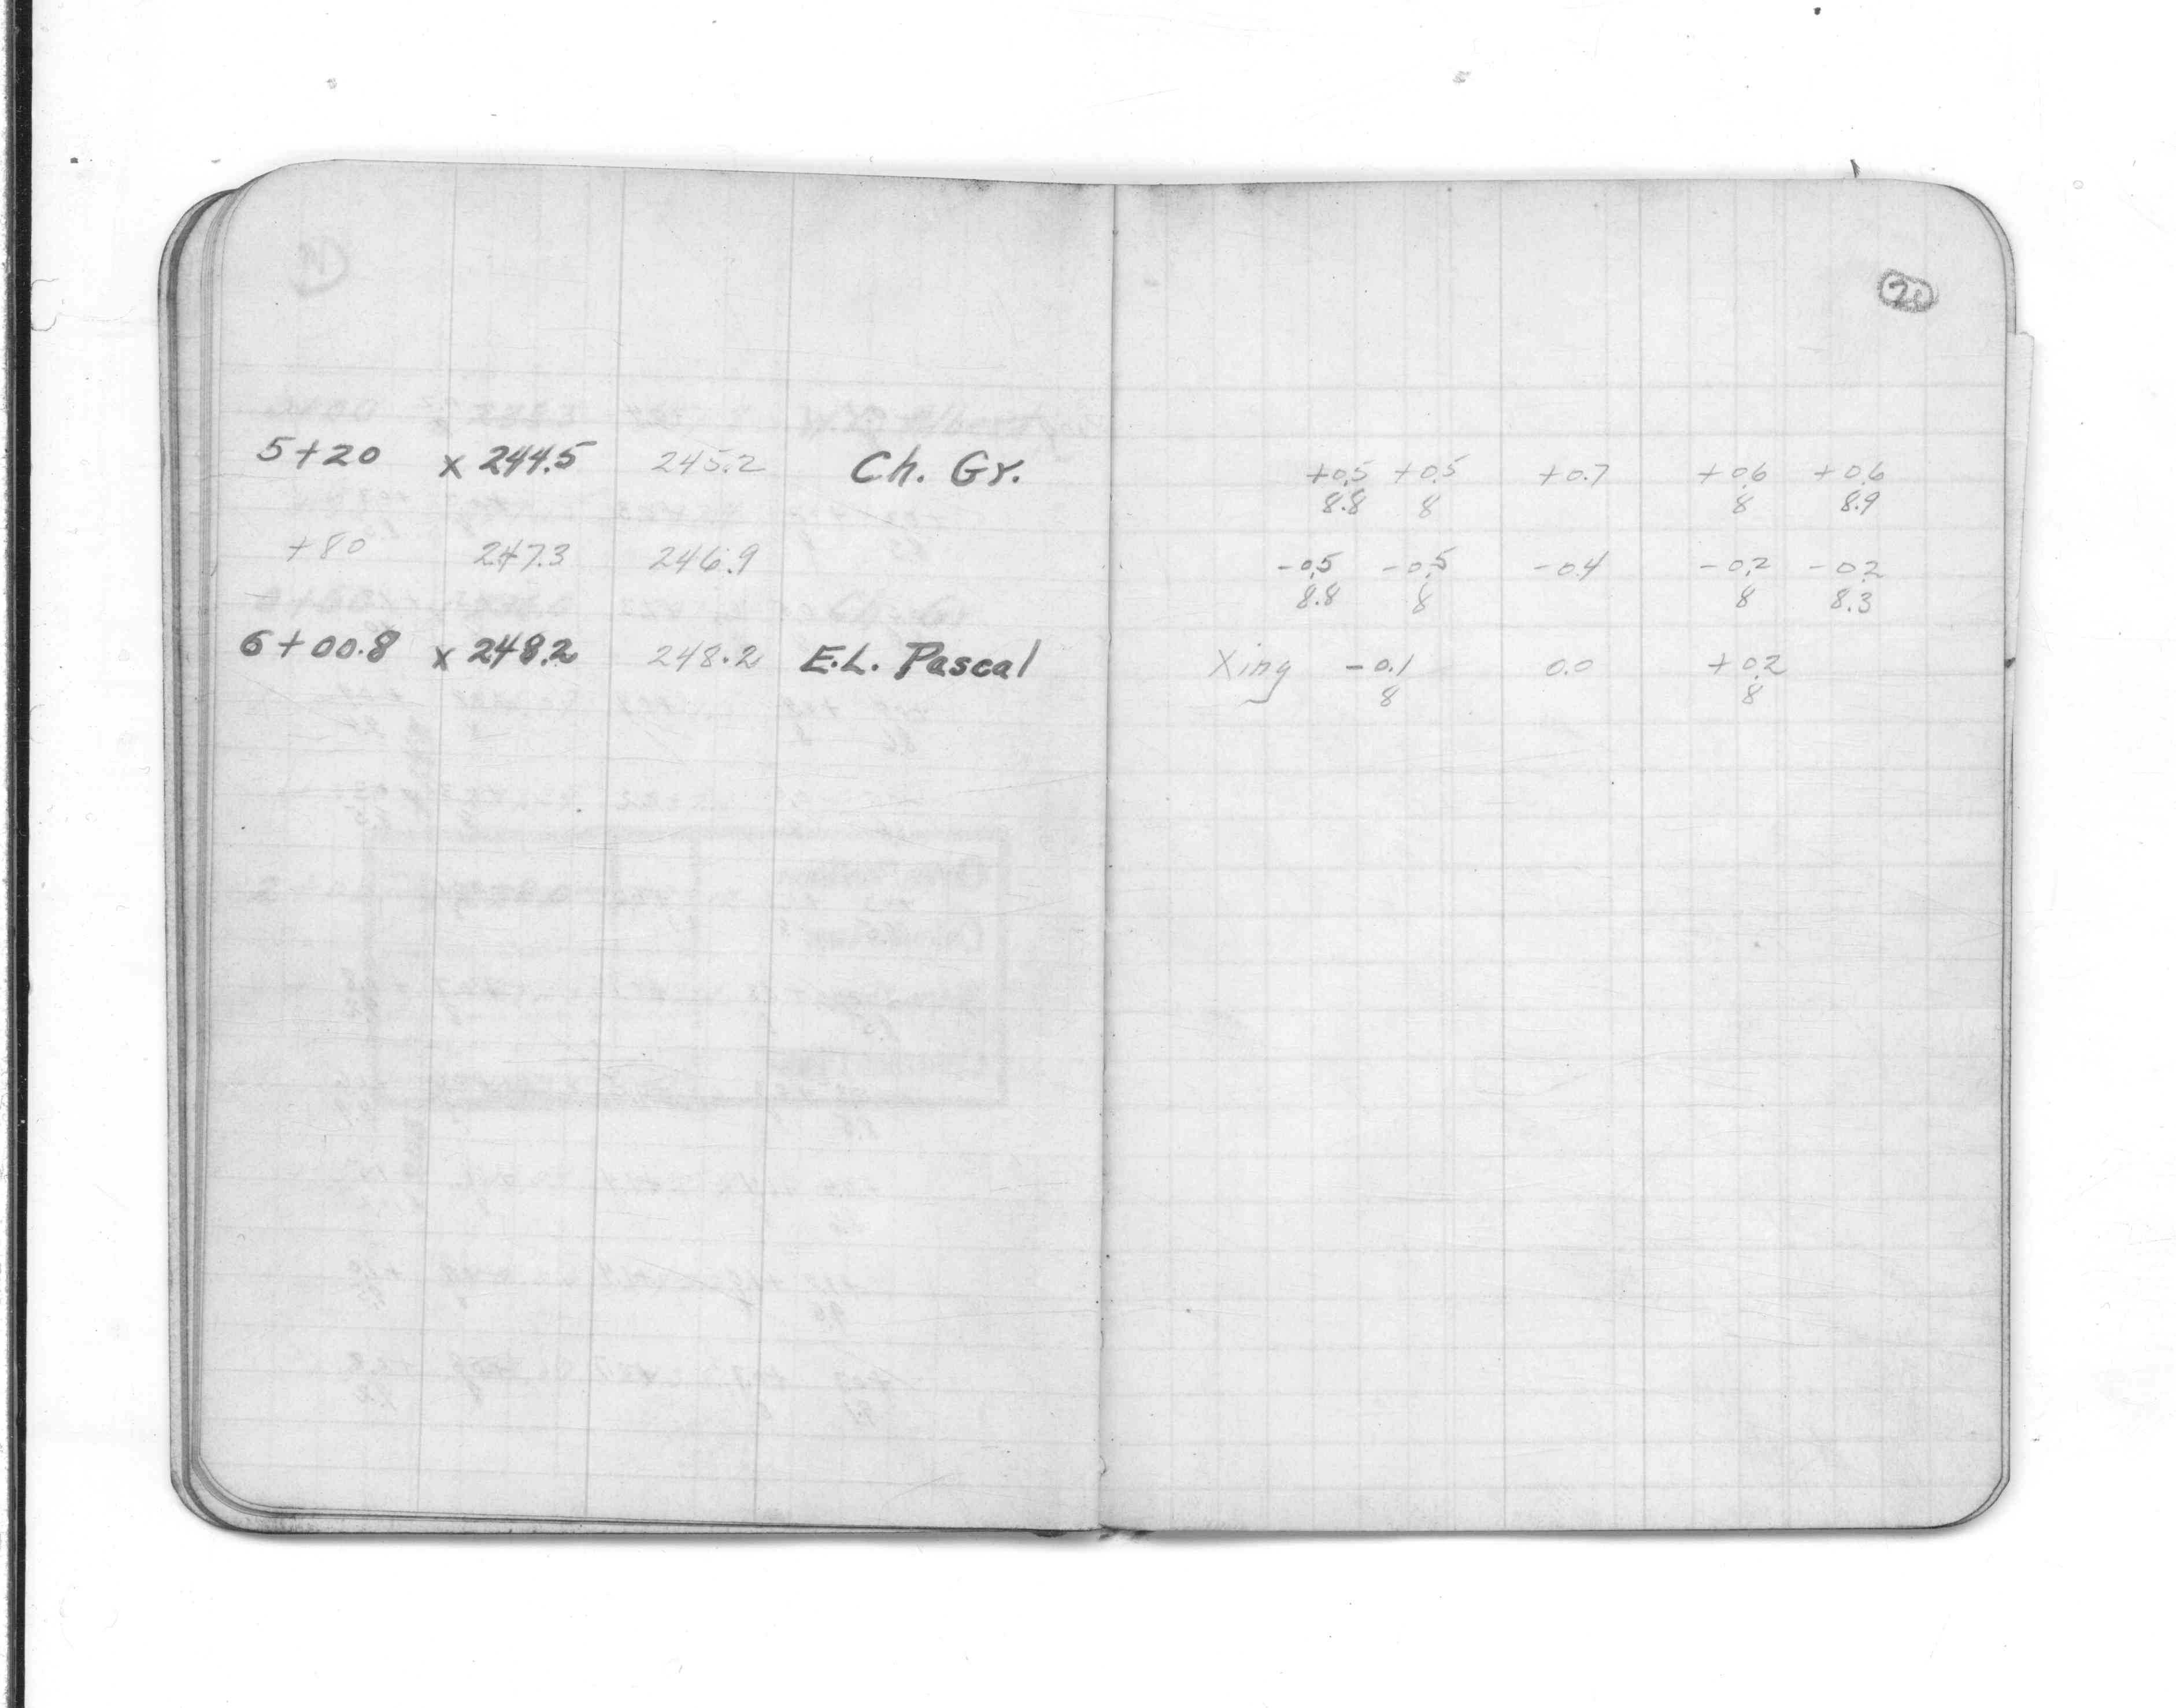 20
5+20 x 244.5 245.2 Ch. Gr. +0.5 +0.5 +0.7 +0.6 +0.6
8.8 8 8 8.9
+80 247.3 246.9 -0.5 -0.5 -0.4 -0.2 -0.2
8.8 8 8 8.3
6+00.8 x 248.2 248.2 E.L. Pascal Xing -0.1 0.0 +0.2
8 8